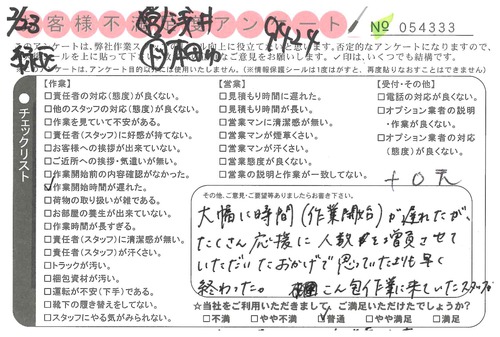 お客様不満足度アンケート
№ 054333
2/23
9424
このアンケートは、弊社作業スタッフの
向上に役立てたいと思います。否定的なアンケートになりますので、
ご意見をお願いします。✓印は、いくつでも結構です。
アンケート目的以外には使用いたしません。(※情報保護シールは1度はがすと、再度貼りなおすことはできません)
チェックリスト
【作業】
□責任者の対応(態度)が良くない。
□他のスタッフの対応(態度)が良くない。
□作業を見ていて不安がある。
□責任者(スタッフ)に好感が持てない。
□お客様への挨拶が出来ていない。
□ご近所への挨拶・気遣いが無い。
□作業開始前の内容確認がなかった。
✓作業開始時間が遅れた。
□荷物の取り扱いが雑である。
□お部屋の養生が出来ていない。
□作業時間が長すぎる。
□責任者(スタッフ)に清潔感が無い。
□責任者(スタッフ)が汗くさい。
□トラックが汚い。
□梱包資材が汚い。
□運転が不安(下手)である。
□靴下の履き替えをしてない。
□スタッフにやる気がみられない。
【営業】
□見積もり時間に遅れた。
□見積もり時間が長い。
□営業マンに清潔感が無い。
□営業マンが煙草くさい。
□営業マンが汗くさい。
□営業態度が良くない。
□営業の説明と作業が一致してない。
【受付・その他】
□電話の対応が良くない。
□オプション業者の説明
・作業が良くない。
□オプション業者の対応
(態度)が良くない。
その他、ご意見・ご要望等ありましたらお書き下さい。
大幅に時間(作業開始)が遅れたが、
たくさん応援に人数を増員させて
いただいたおかげで思っていたよりも早く
終わった。こん包作業に来ていたスタッフが
☆当社をご利用いただきまして、ご満足いただけたでしょうか?
□不満 □やや不満 ✓普通 □やや満足 □満足